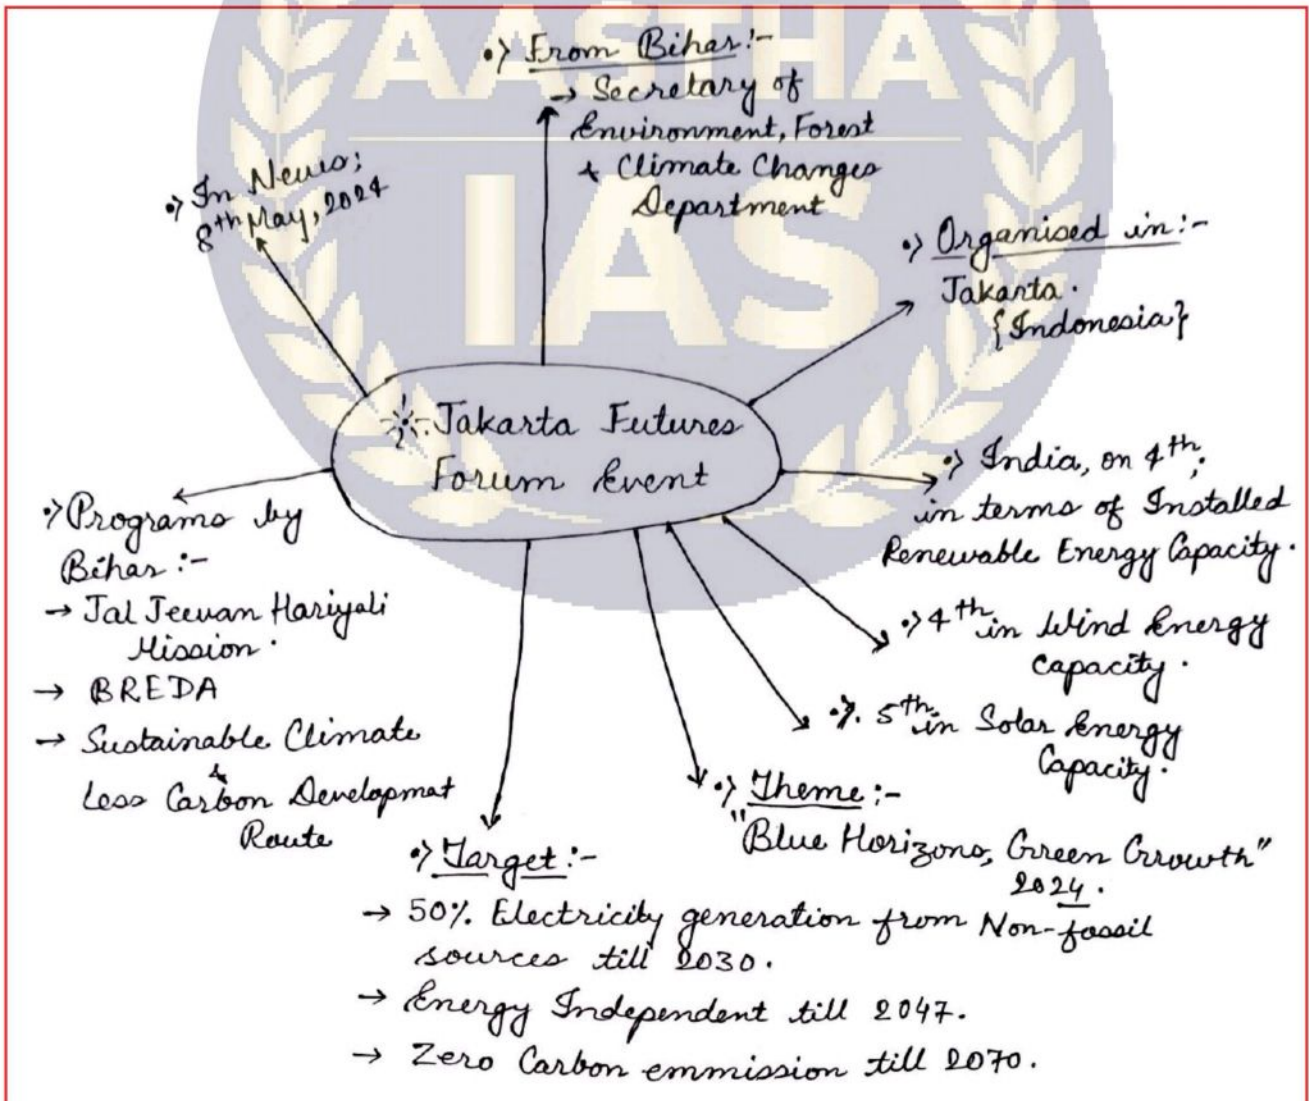 AASTHA
IAS
•> From Bihar:-
→ Secretary of
Environment, Forest
& Climate Changes
Department
•> In News;
8th May, 2024
•> Organised in:-
Jakarta.
{Indonesia}
Jakarta Futures
Forum Event
•> India, on 4th,
in terms of Installed
Renewable Energy Capacity.
•> 4th in Wind Energy
Capacity.
•>. 5th in Solar Energy
Capacity.
•> Theme:-
"Blue Horizons, Green Growth"
2024.
•> Programs by
Bihar:-
→ Jal Jeevan Hariyali
Mission.
→ BREDA
→ Sustainable Climate
&
Less Carbon Developmat
Route
•> Target:-
→ 50% Electricity generation from Non-fossil
sources till 2030.
→ Energy Independent till 2047.
→ Zero Carbon emmission till 2070.